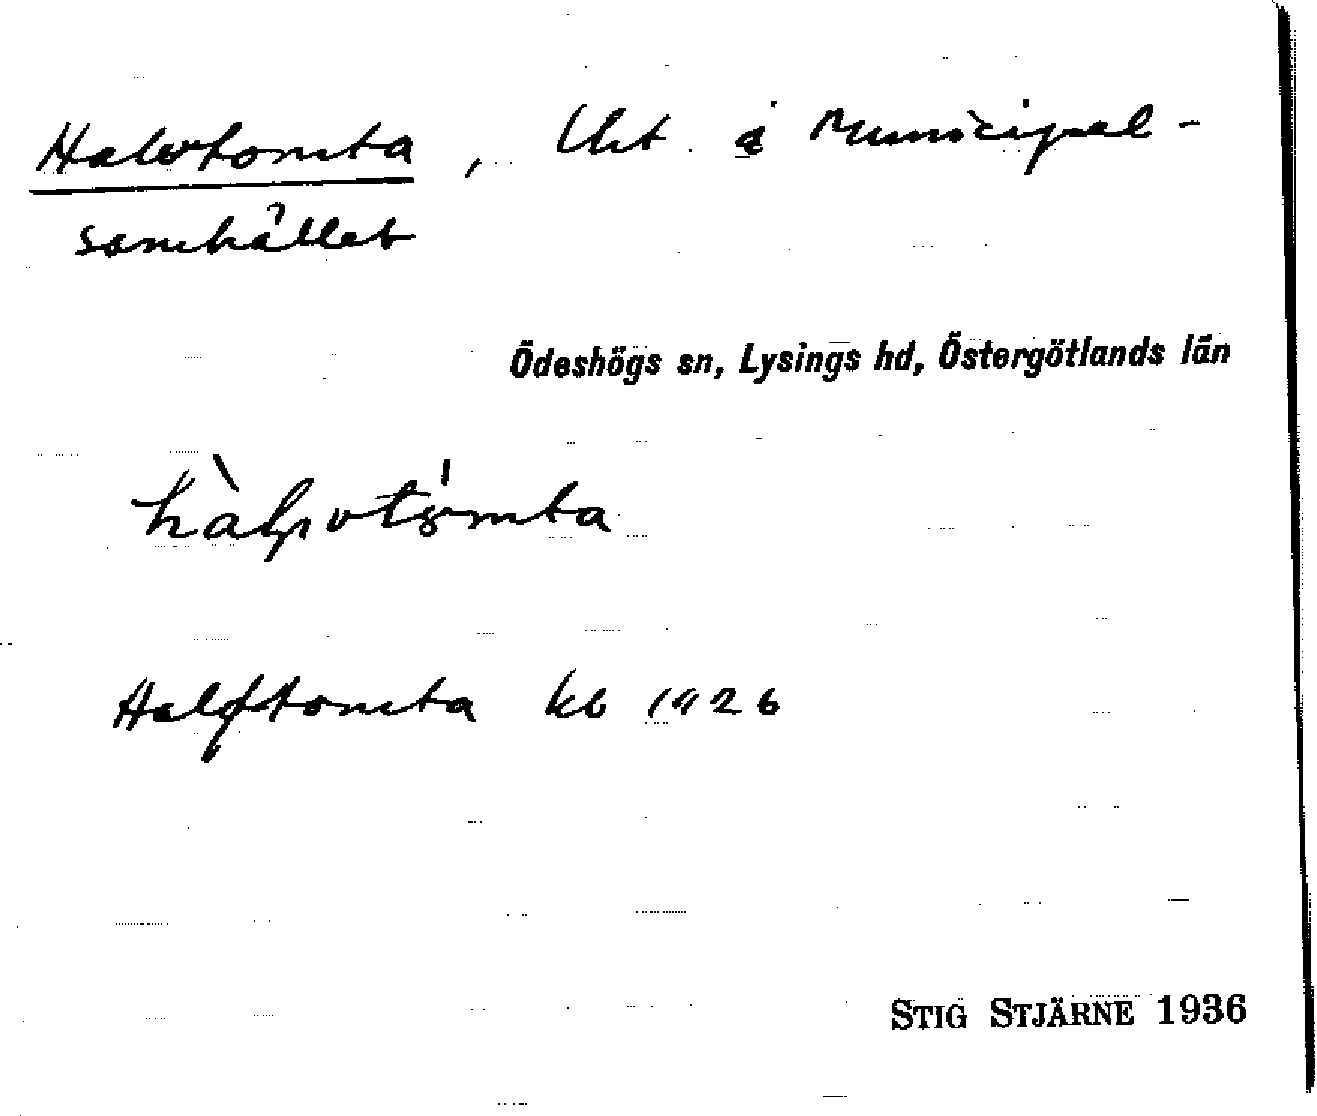 Halvtomta, Lht å Municipal-
samhället
Ödeshögs sn, Lysings hd, Östergötlands län
Halftomta kb 1926
STIG STJÄRNE 1936